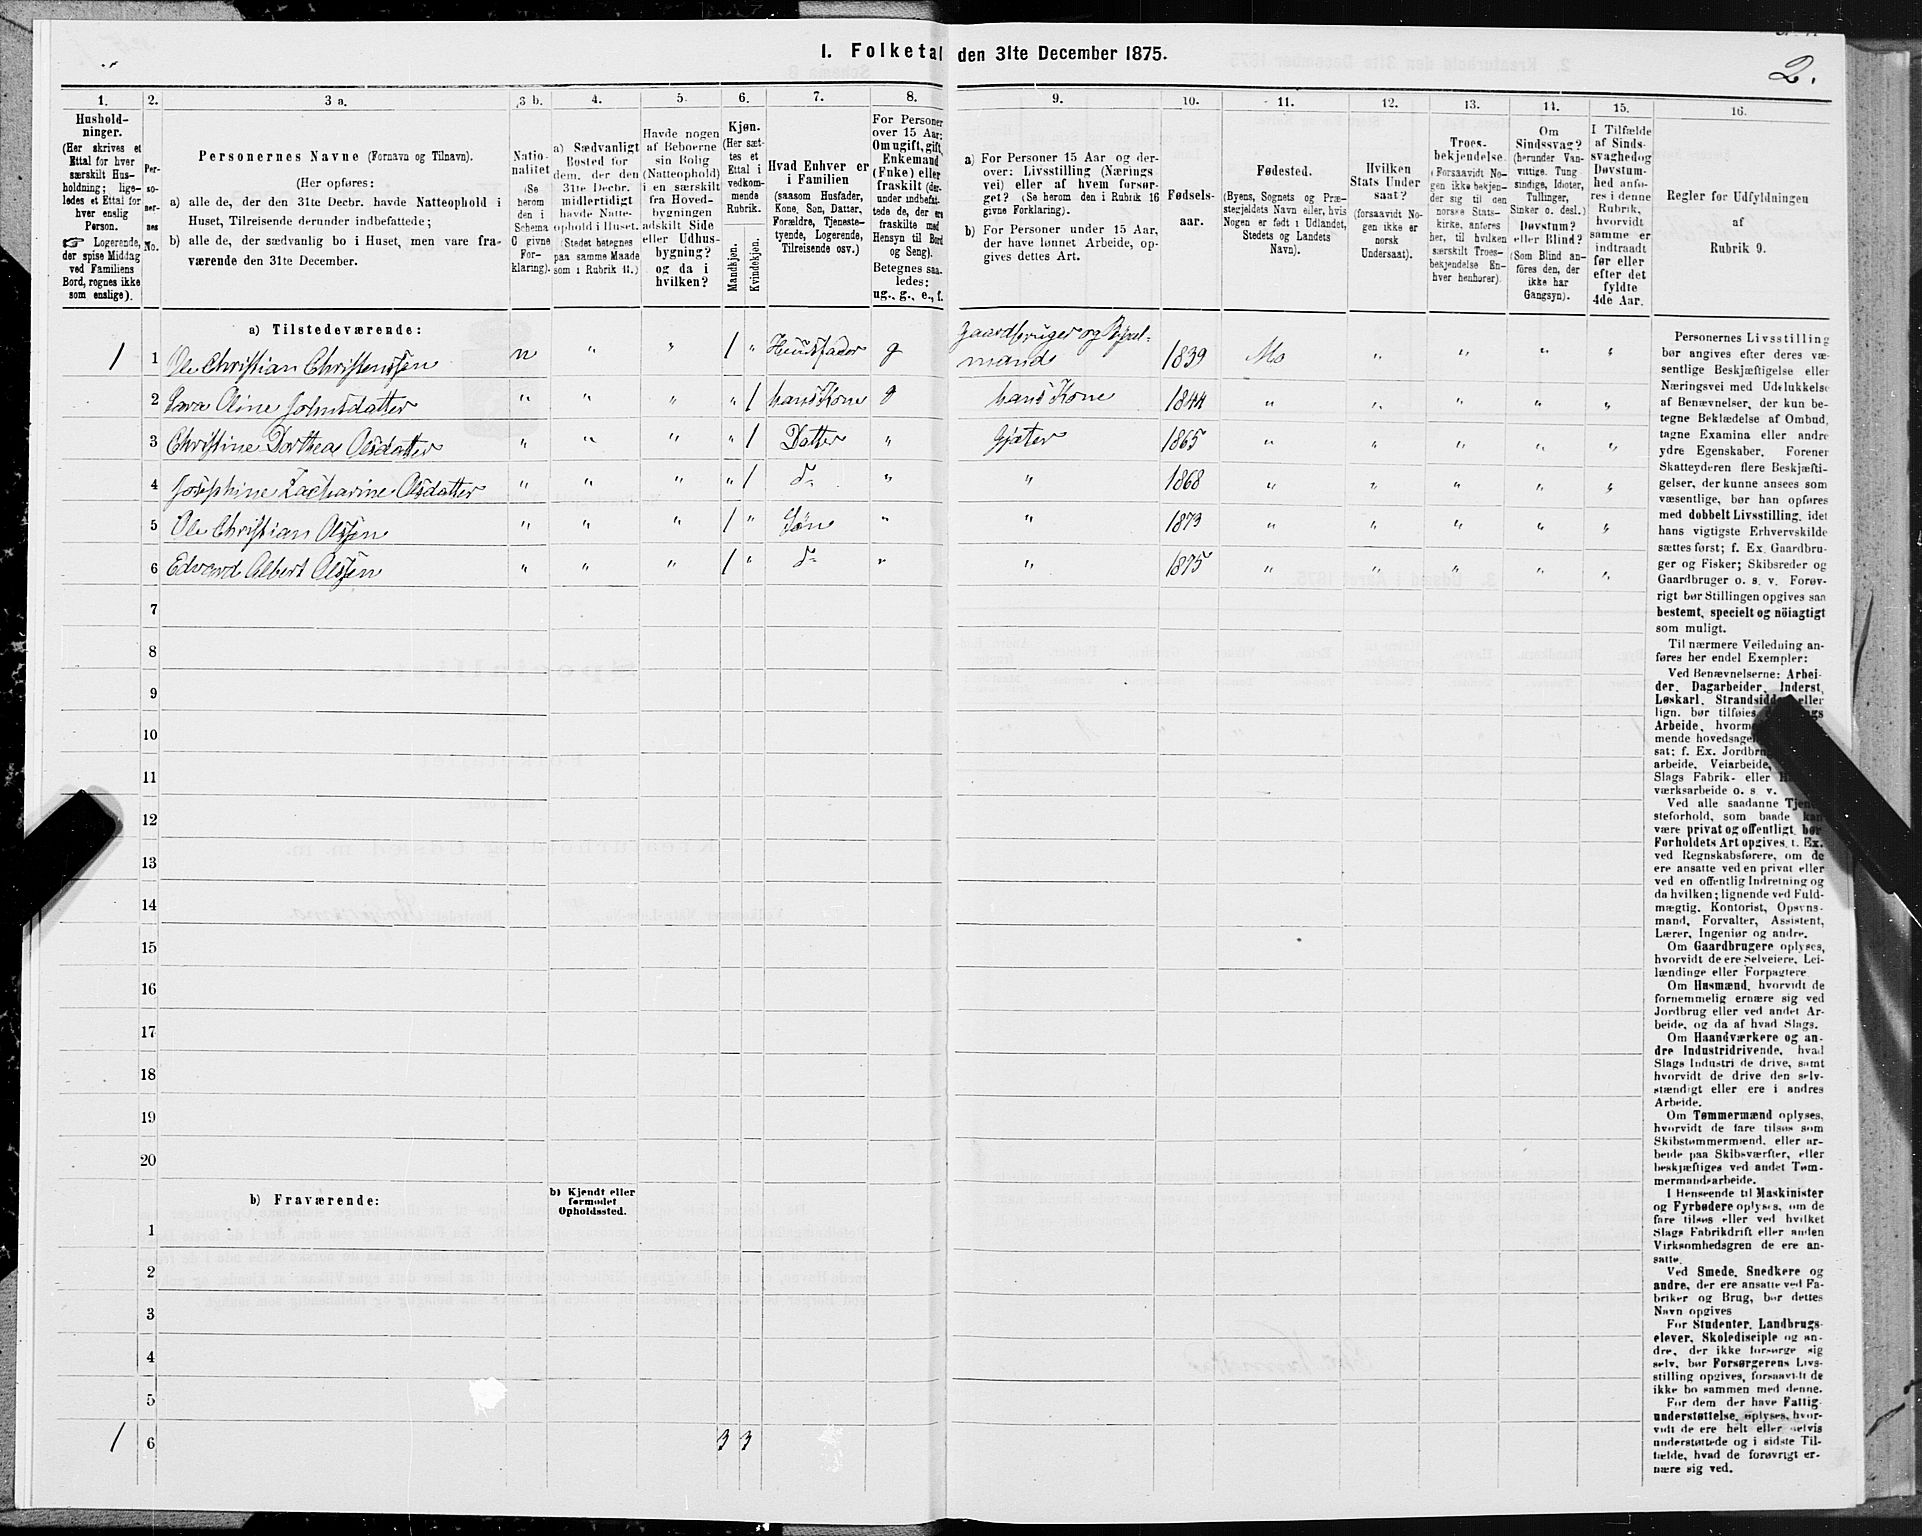 I. Folketal den 31te December 1875.
2.
1.
Hushold-
ninger.
(Her skrives et
Ettal for hver
særskilt Hus-
holdning; lige-
ledes et Ettal for
hver enslig
Person.
☞ Logerende,
der spise Middag
ved Familiens
Bord, regnes ikke
som enslige).
2.
Per-
so-
ner-
nes
No.
3 a.
Personernes Navne (Fornavn og Tilnavn).
(Her opføres:
a) alle de, der den 31te Decbr. havde Natteophold i
Huset, Tilreisende derunder indbefattede;
b) alle de, der sædvanlig bo i Huset, men vare fra-
værende den 31te December.
3 b.
Natio-
nalitet
(Se
herom
den i
Schema
C givne
For-
klaring).
4.
a) Sædvanligt
Bosted for
dem, der den
31te Decbr.
midlertidigt
havde Natte-
ophold i Huset.
(Stedet betegnes
paa samme Maade
som i Rubrik 11.)
5.
Havde nogen
af Beboerne
sin Bolig
(Natteophold)
i en særskilt
fra Hoved-
bygningen
adskilt Side
eller Udhus-
bygning?
og da i
hvilken?
6.
Kjøn.
(Her sæt-
tes et
Ettal i
vedkom-
mende
Rubrik.
Mandkjøn.
Kvindekjøn.
7.
Hvad Enhver er
i Familien
(saasom Husfader,
Kone, Søn, Datter,
Forældre, Tjeneste-
tyende, Logerende,
Tilreisende osv.)
8.
For Personer
over 15 Aar:
Om ugift, gift,
Enkemand
(Enke) eller
fraskilt (der-
under indbefat-
tede de, der ere
fraskilte med
Hensyn til Bord
og Seng).
Betegnes saa-
ledes:
ug., g., e., f.
9.
a) For Personer 15 Aar og der-
over: Livsstilling (Nærings
vei) eller af hvem forsør-
get? (Se herom den i Rubrik 16
givne Forklaring).
b) For Personer under 15 Aar,
der have lønnet Arbeide, op-
gives dettes Art.
10.
Fødsels-
aar.
11.
Fødested.
(Byens, Sognets og Præ-
stegjeldets Navn eller, hvis
Nogen er født i Udlandet,
Stedets og Landets
Navn).
12.
Hvilken
Stats Under
saat?
(forsaavidt No-
gen ikke er
norsk
Undersaat).
13.
Troes-
bekjendelse.
(Forsaavidt No-
gen ikke bekjen-
der sig til den
norske Stats-
kirke, anføres
her, til hvilken
særskilt Troes-
bekjendelse En-
hver henhører).
14.
Om
Sindssvag?
(herunder Van-
vittige, Tung
sindige, Idioter,
Tullinger,
Sinker o. desl.)
Døvstum?
eller Blind?
(Som Blind an-
føres den, der
ikke har
Gangsyn).
15.
I Tilfælde
af Sinds-
svaghed og
Døvstum-
hed anfø-
res i denne
Rubrik,
hvorvidt
samme er
indtraadt
før eller
efter det
fyldte
4de Aar.
16.
Regler for Udfyldningen
af
Rubrik 9.
a) Tilstedeværende:
1 1 Ole Christian Christenssen n " " 1 " Huusfader g Gaardbruger og Bøxel-
mand 1839 Mo " " " "
2 Sara Oline Johnsdatter " " " " 1 hans Kone g hans Kone 1844 " " " " "
3 Christine Dorthea Olsdatter " " " " 1 Datter " Gjæter 1865 " " " " "
4 Josephine Zacharine Olsdatter " " " " 1 d- " " 1868 " " " " "
5 Ole Christian Olssen " " " 1 " Søn " " 1873 " " " " "
6 Edvard Albert Olssen " " " 1 " d- " " 1875 " " " " "
7
8
9
10
11
12
13
14
15
16
17
18
19
20
b) Fraværende:
b) Kjendt eller
formodet
Opholdssted.
1
2
3
4
5
1 6 3 3
Personernes Livsstilling
bør angives efter deres væ-
sentlige Beskjæftigelse eller
Næringsvei med Udelukkelse
af Benævnelser, der kun be-
tegne Beklædelse af Ombud,
tagne Examina eller andre
ydre Egenskaber. Forener
Skatteyderen flere Beskjæfti-
gelser, der kunne ansees som
væsentlige, bør han opføres
med dobbelt Livsstilling, idet
hans vigtigste Erhvervskilde
sættes først; f. Ex. Gaardbru-
ger og Fisker; Skibsreder og
Gaardbruger o. s. v. Forøv-
rigt bør Stillingen opgives saa
bestemt, specielt og nöiagtigt
som muligt.
Til nærmere Veiledning an-
føres her endel Exempler:
Ved Benævnelserne: Arbei-
der, Dagarbeider, Inderst,
Løskarl, Strandsidder eller
lign. bør tilføies
Arbeide, hvorme
mende hovedsage
sat; f. Ex. Jordbr
arbeide, Veiarbeide,
Slags Fabrik- eller
værksarbeide o. s v.
Ved alle saadanne Tjene-
steforhold, som baade kan
være privat og offentligt, bør
Forholdets Art opgives, t. Ex.
ved Regnskabsførere, om de
ere ansatte ved en privat eller
ved en offentlig Indretning og
da hvilken; lignende ved Fuld-
mægtig, Kontorist, Opsyns-
mand, Forvalter, Assistent,
Lærer, Ingeniør og andre.
Om Gaardbrugere oplyses,
hvorvidt de ere Selveiere, Lei-
lændinge eller Forpagtere
Om Husmænd, hvorvidt de
fornemmelig ernære sig ved
Jordbrug eller ved andet Ar-
beide, og da af hvad Slags.
Om Haandværkere og an-
dre Industridrivende, hvad
Slags Industri de drive, samt
hvorvidt de drive den selv-
stændigt eller ere i andres
Arbeide.
Om Tømmermænd oplyses,
hvorvidt de fare tilsøs som
Skibstømmermænd, eller ar-
beide paa Skibsværfter, eller
beskjæftiges ved andet Tøm-
mermandsarbeide.
I Henseende til Maskinister
og Fyrbødere oplyses, om de
fare tilsøs eller ved hvilket
Slags Fabrikdrift eller anden
Virksomhedsgren de ere an-
satte.
Ved Smede, Snedkere og
andre, der ere ansatte ved Fa-
briker og Brug, bør dettes
Navn opgives
For Studenter, Landbrugs-
elever, Skoledisciple og an-
dre, der ikke forsørge sig
selv, bør Forsørgerens Livs-
stilling opgives, forsaavidt de
ikke bo sammen med denne.
For dem der have Fattig-
understøttelse, oplyses, hvor-
vidt de ere helt eller delvis
understøttede og i sidste Til-
fælde, hvad de forøvrigt er-
nære sig ved.